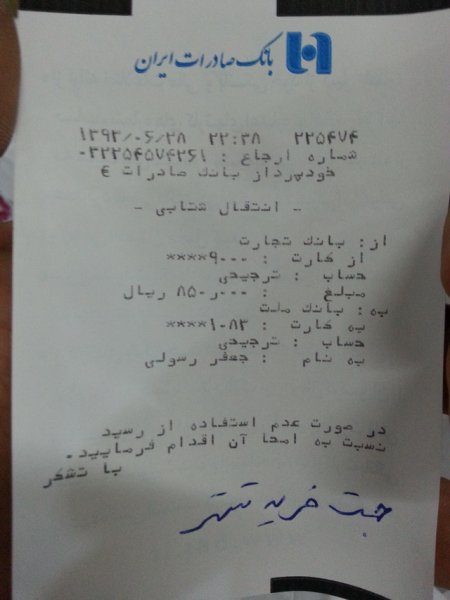 بانک صادرات ایران
۱۳۹۲/۰۶/۲۸ ۲۲:۳۸ ۲۲۵۴۷۴
شماره ارجاع : ۰۲۲۲۵۴۵۷۴۲۶۱
خودپرداز بانک صادرات €
- انتقال شتابی -
از: بانک تجارت
از کارت : ****۹۰۰۰
حساب : ترجیحی
مبلغ : ۸۵۰٫۰۰۰ ریال
به: بانک ملت
به کارت : ****۱۰۸۳
حساب : ترجیحی
به نام : جعفر رسولی
در صورت عدم استفاده از رسید
نسبت به امحا آن اقدام فرمایید.
با تشکر
جهت خرید تستر